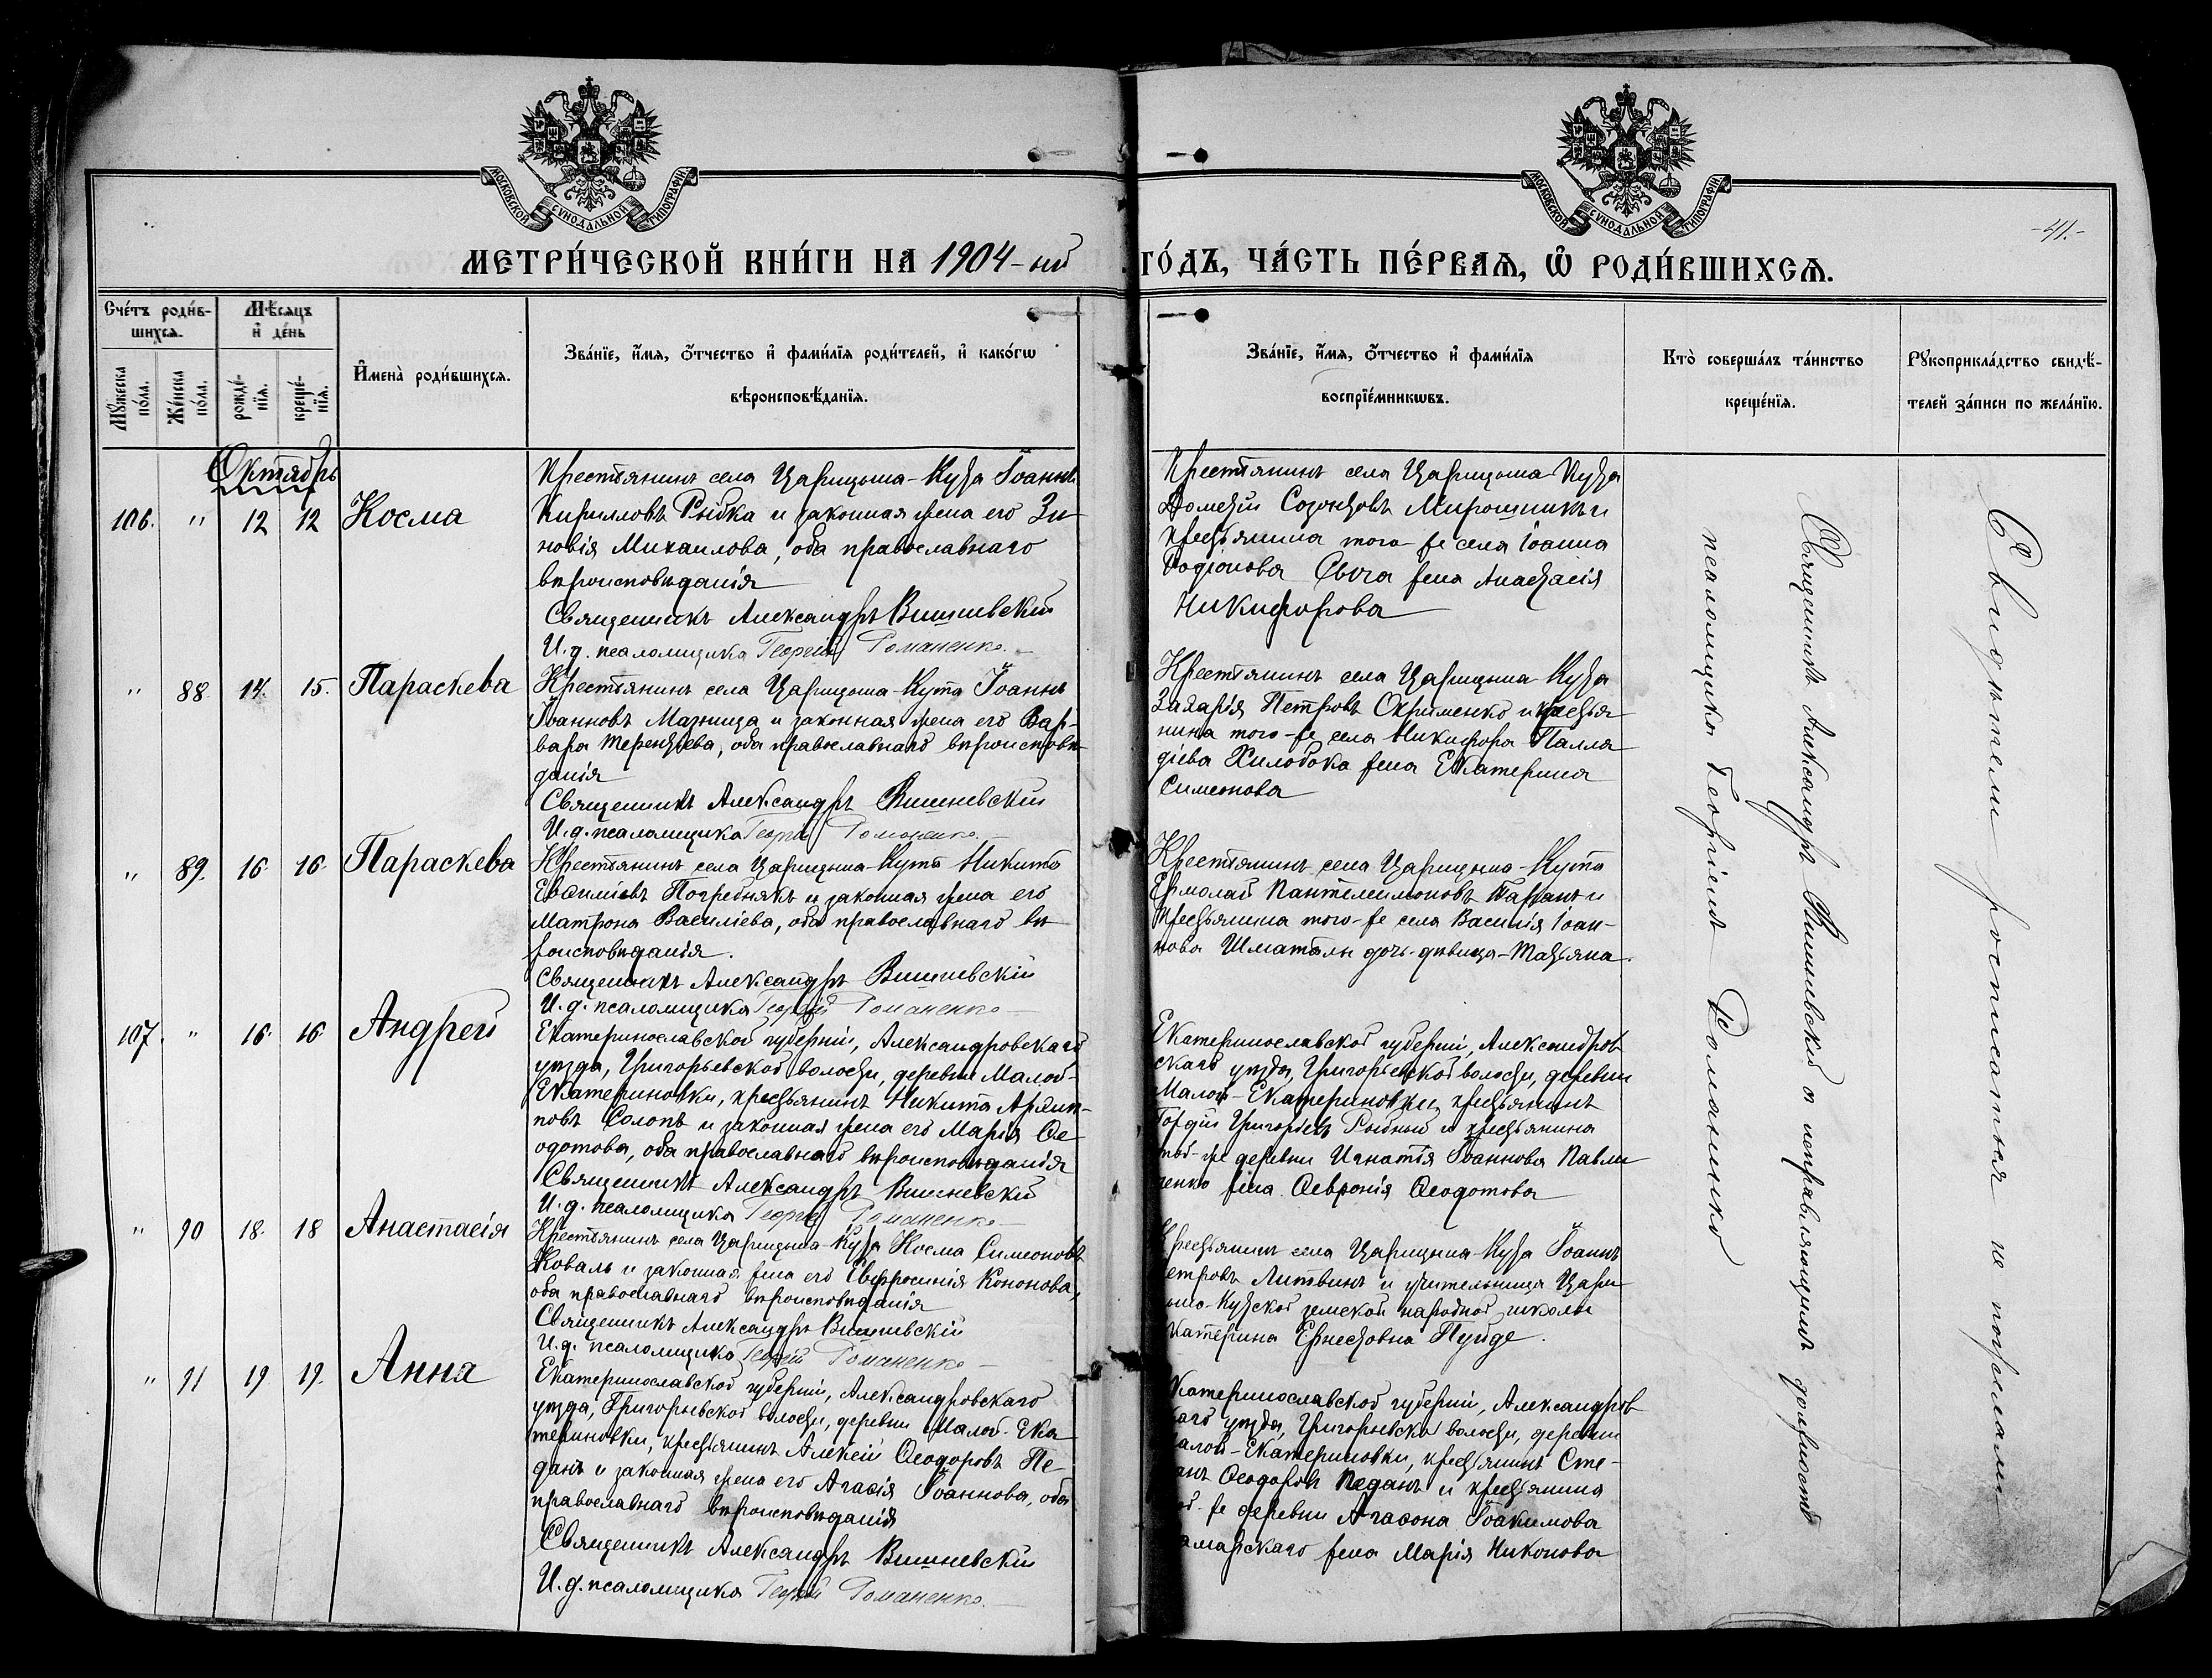 МОСКОВСКОЙ СУНОДАЛЬНОЙ ТИПОГРАФІИ
МОСКОВСКОЙ СУНОДАЛЬНОЙ ТИПОГРАФІИ
-41.-
МЕТРИ́ЧЕСКОЙ КНИ́ГИ НА 1904-ый ГО́ДЪ, ЧА́СТЬ ПЕ́РВАЯ, Ѡ РОДИ́ВШИХСЯ.
Сче́тъ роди́в-
шихся.
Мѣ́сяцъ
и҆ де́нь
Мꙋ́жеска
по́ла.
Же́нска
по́ла.
рожде́-
нїя.
креще́-
нїя.
И҆мена̀ роди́вшихся.
Зва́нїе, и҆́мя, ѻ҆́тчество и҆ фами́лїя роди́телей, и҆ како́гѡ
вѣроисповѣ́данїя.
Зва́нїе, и҆́мя, ѻ҆́тчество и҆ фами́лїя
воспрїе́мникѡвъ.
Кто̀ соверша́лъ та́инство
креще́нїя.
Рꙋкоприкла́дство свидѣ́-
телей за́писи по жела́нїю.
Октябрь
106. " 12 12 Косма
Крестьянинъ села Царицына-Кута Іоаннъ
Кирилловъ Рыбка и законная жена его Зи-
новія Михаилова, оба православнаго
вѣроисповѣданія
Священникъ Александръ Вишневскій
И. д. псаломщика Георгій Романенко.
Крестьянинъ села Царицына-Кута
Дометій Созонтовъ Мирошникъ и
крестьянина того-же села Іоанна
Родіонова Сыча жена Анастасія
Никифорова
" 88. 14. 15. Параскева
Крестьянинъ села Царицына-Кута Іоаннъ
Іоанновъ Мазница и законная жена его Вар-
вара Терентьева, оба православнаго вѣроисповѣ-
данія
Священникъ Александръ Вишневскій
И. д. псаломщика Георгій Романенко.
Крестьянинъ села Царицына-Кута
Захарія Петровъ Охрименко и крестья-
нина того-же села Никифора Палла-
діева Хилобока жена Екатерина
Симеонова
" 89. 16. 16. Параскева
Крестьянинъ села Царицына-Кута Никита
Евѳиміевъ Погребнякъ и законная жена его
Матрона Василіева, оба православнаго вѣ-
роисповѣданія.
Священникъ Александръ Вишневскій
И. д. псаломщика Георгій Романенко
Крестьянинъ села Царицына-Кута
Ермолай Пантелеимоновъ Таранъ и
крестьянина того-же села Василія Іоан-
нова Шматали дочь-дѣвица-Татьяна.
107. " 16. 16. Андрей
Екатеринославской губерніи, Александровскаго
уѣзда, Григорьевской волости, деревни Малой-
Екатериновки, крестьянинъ Никита Архип-
повъ Солопъ и законная жена его Марія Ѳе-
одотова, оба православнаго вѣроисповѣданія
Священникъ Александръ Вишневскій
И. д. псаломщика Георгій Романенко
Екатеринославской губерніи, Александров
скаго уѣзда, Григорьевской волости, деревни
Малой-Екатериновки, крестьянинъ
Гордій Григорьевъ Рыбный и крестьянина
той-же деревни Игнатія Іоаннова Павли-
ченко жена Ѳевронія Ѳеодотова
" 90 18. 18 Анастасія
Крестьянинъ села Царицына-Кута Косма Симеоновъ
Коваль и законная жена его Евфросинія Кононова,
оба православнаго вѣроисповѣданія
Священникъ Александръ Вишневскій
И. д. псаломщика Георгій Романенко
крестьянинъ села Царицына-Кута Іоаннъ
етровъ Литвинъ и учительница Цари-
ыно-Кутской земской народной школы
катерина Ернестовна Пуйде.
" 91 19 19. Анна
Екатеринославской губерніи, Александровскаго
уѣзда, Григорьевской волости, деревни Малой-Ека
териновки, крестьянинъ Алексій Ѳеодоровъ Пе-
данъ и законная жена его Агаѳія Іоаннова, оба
православнаго вѣроисповѣданія
Священникъ Александръ Вишневскій
И. д. псаломщика Георгій Романенко.
катеринославской губерніи, Александров
каго уѣзда, Григорьевской волости, деревни
алой-Екатериновки, крестьянинъ Сте-
анъ Ѳеодоровъ Педанъ и крестьянина
ой-же деревни Агаѳона Іоакимова
амарскаго жена Марія Никонова
Священникъ Александръ Вишневскій съ исправляющимъ должность
псаломщика Георгіемъ Романенко
Свидѣтели росписаться не пожелали